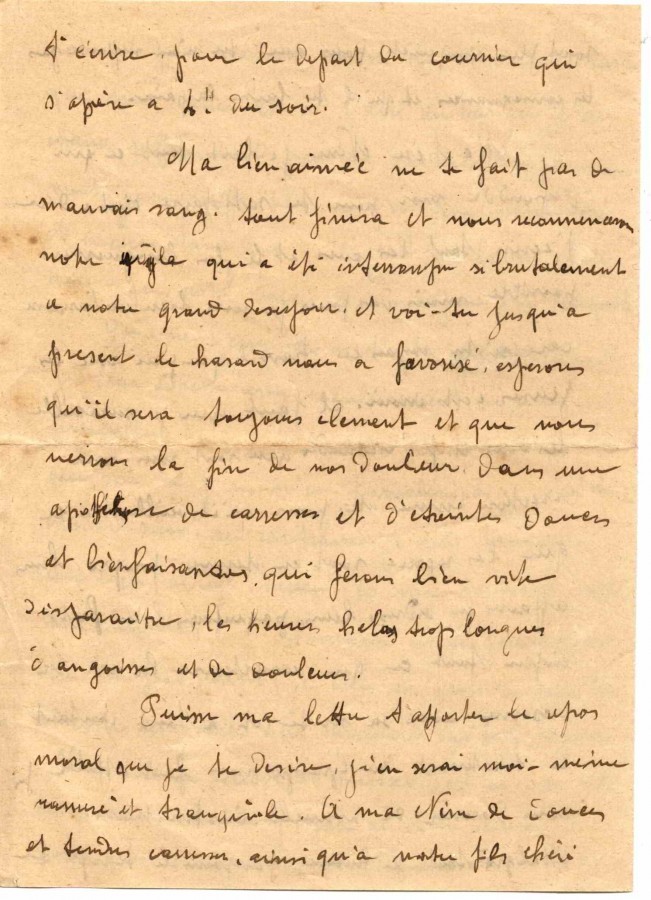 t'écrire pour le depart du courrier qui
s'opère a 4H du soir.
Ma bien aimée ne te fait pas de
mauvais sang. tout finira et nous recommencerons
notre qui a été interrompu si brutalement
a notre grand desespoir. et voi-tu jusqu'a
present le hasard nous a favorisé, esperons
qu'il sera toujours clement et que nous
verrons la fin de nos douleur dans une
apothéose de carresses et d'etreintes douces
et bienfaisantes, qui ferons bien vite
disparaitre, les heures helas trop longues
d'angoisses et de douleur.
Puisse ma lettre t'apporter le repos
moral que je te desire, j'en serai moi-même
rassuré et tranquile. A ma de douces
et tendres carresses, ainsi qu'a notre fils chéri